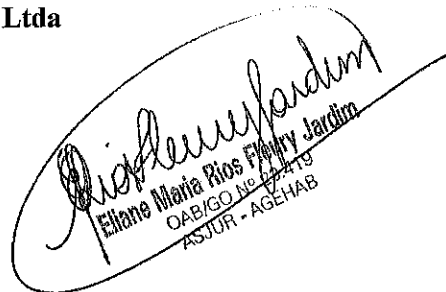 Ltda
Eliane Maria Rios Fleury Jardim
OAB/GO Nº
ASJUR - AGEHAB